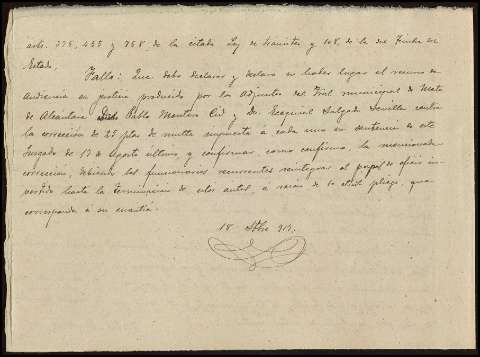 arts. 778, 455 y 758, de la citada Ley de trámites y 108, de la del Timbre del
Estado,
Fallo: Que debo declarar y declaro sin haber lugar el recurso de
audiencia en justicia producido por los Adjuntos del Tribl municipal de Mata
de Alcántara Pablo Montero Cid y Dn. Ezequiel Salgado Sevilla contra
la corrección de 25 ptas de multa impuesta a cada uno en sentencia de este
Juzgado de 13 de Agosto último y confirmar, como confirmo, la mencionada
corrección, debiendo los funcionarios recurrentes reintegrar el papel de oficio in-
vertido hasta la terminación de estos autos, a razón de pliego, que
corresponde a su cuantía.
18 Stbre 913.